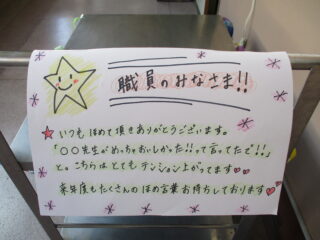 職員のみなさま!!
いつもほめて頂きありがとうございます。
「○○先生がめっちゃおいしかった!!って言ってたで!!」
と。こちらはとてもテンション上がってます
来年度もたくさんのほめ言葉お待ちしております